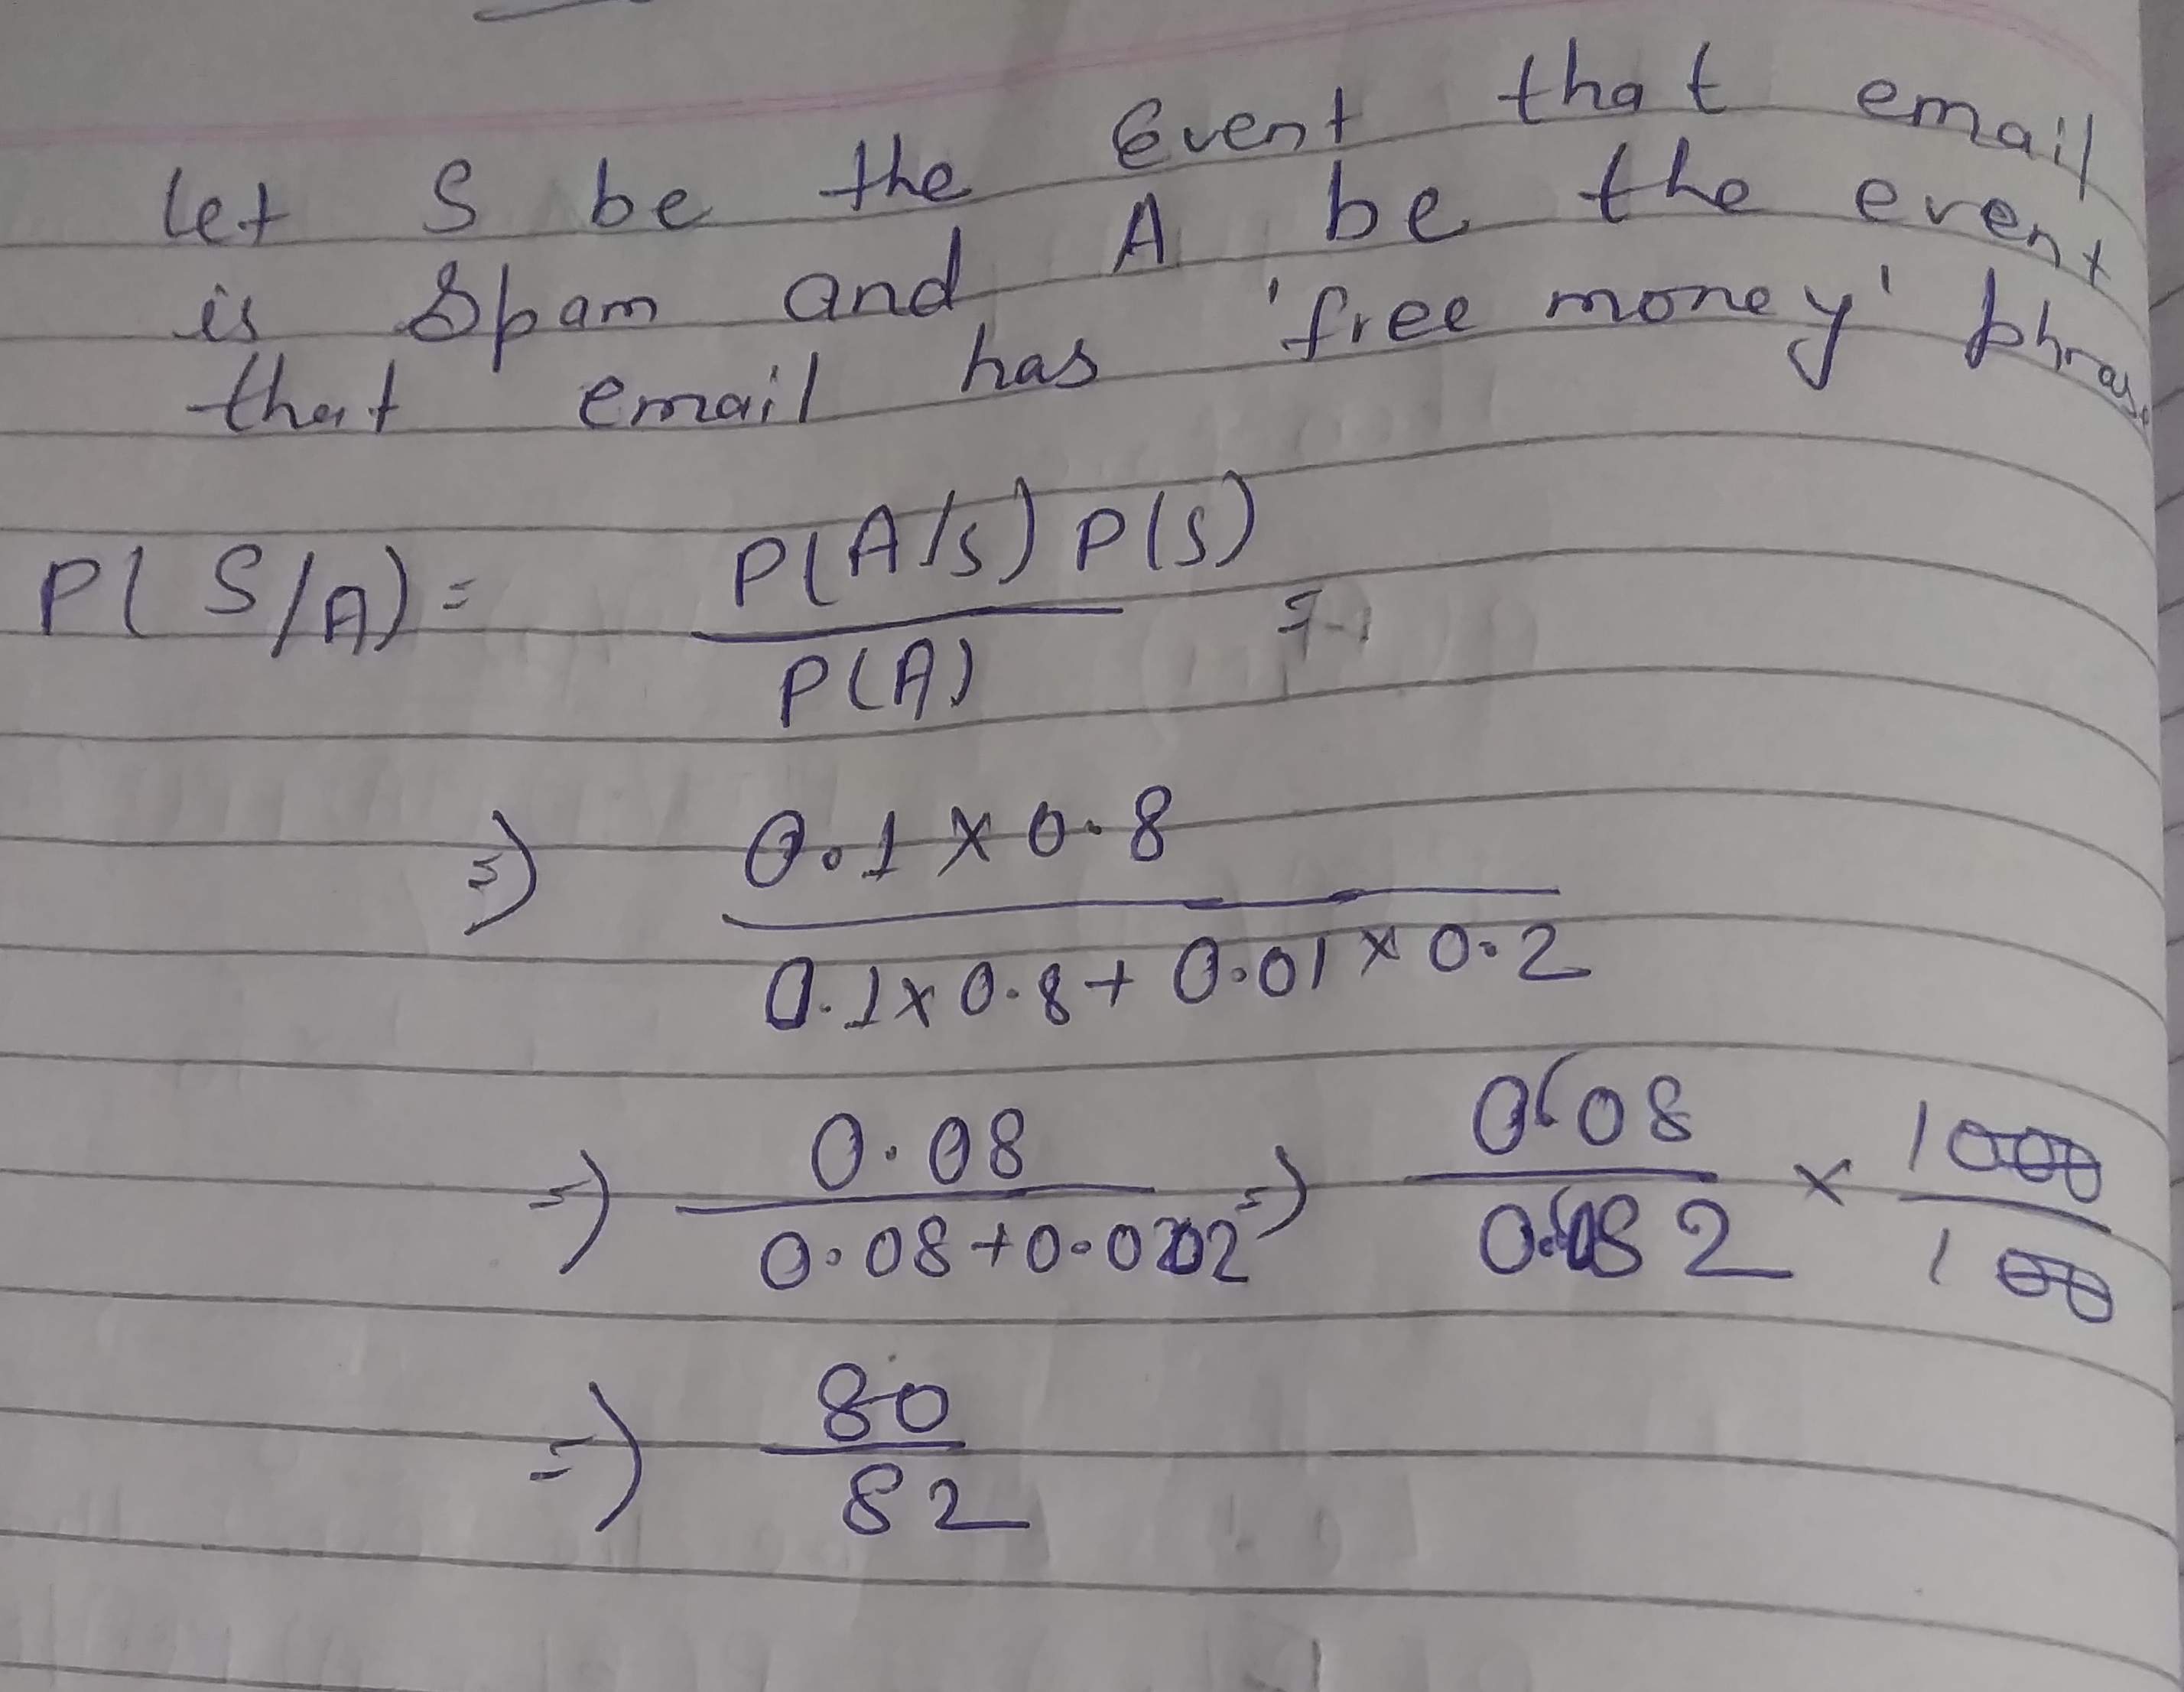 Let S be the Event that email
is Spam and A be the event
that email has 'free money' phrase
P(S/A) = P(A/S) P(S) / P(A)
=> 0.1 × 0.8 / 0.1 × 0.8 + 0.01 × 0.2
=> 0.08 / 0.08 + 0.002 => 0.08 / 0.082 × 1000 / 100
=> 80 / 82